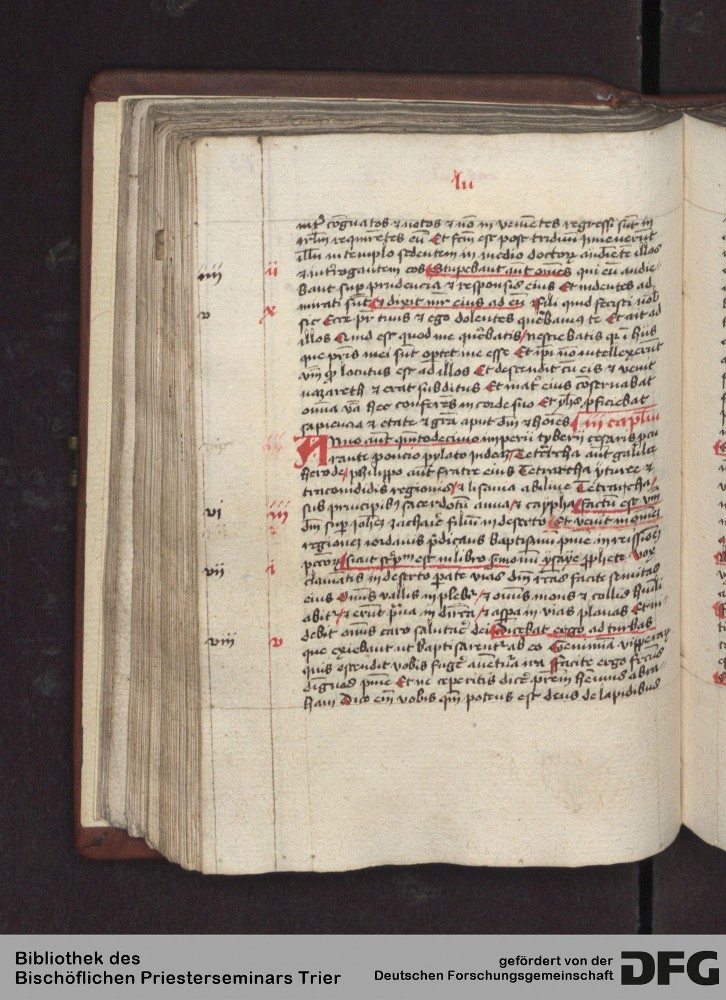 lu
int cognatos ⁊ notos ⁊ no in venietes regressi sut in
irlm requiretes eu Et fcm est post triduu Jnuenerut
illu in templo sedentem in medio doctoꝝ audiete illos
iiii ii ⁊ interrogantem eos Stupebant aut omes qui eu audie
bant sup prudencia ⁊ responsis eius Et videntes ad
v x mirati sut Et dixit mr eius ad eu Fili quid fecisti nob
sic Ecce pr tuus ⁊ ego dolentes querebamꝰ te Et ait ad
illos Quid est quod me querebatis nesciebatis qr i hiis
que pris mei sut optet me esse Et ipi no intellexerut
vm qd locutus est ad illos Et descendit cu eis ⁊ venit
nazareth ⁊ erat subditus Et mat eius coseruabat
omia va hec conferes in corde suo Et yhs pficiebat
sapiencia ⁊ etate ⁊ gra aput dm ⁊ hoies iii caplm
Anno aut quintodecimo imperii tyberii cesaris pcu
rante poncio pylato iudea Tetrarcha aut galilee
herode philippo aut fratre eius Tetrarcha yturee ⁊
traconididis regionis ⁊ lisania abiline Tetrarcha
vi iii sub principibꝰ sacerdotu anna ⁊ caypha factu est vm
dm sup johem zacharie filiu in deserto Et venit in omne
regionem iordanis pdicans baptismu pnie in remissione
pctoꝝ Sicut scptm est in libro smonu ysaye pphete vox
vii i clamatis in deserto pate vias dni rctas facite semitas
eius Omis vallis implebr ⁊ omis mons ⁊ collis humili
abitr ⁊ erut praua in dircta ⁊ aspa in vias planas Et vi
debit omis caro salutare dei Dicebat ergo ad turbas
viii v que exiebant ut baptisarentr ab eo Genimina vipperaꝝ
quis ostendit vobis fugere a ventura ira Facite ergo fructus
dignos pnie Et ne ceperitis dicere prem hemus abra
ham Dico em vobis qm potens est deus de lapidibus
Bibliothek des
Bischöflichen Priesterseminars Trier
gefördert von der
Deutschen Forschungsgemeinschaft
DFG